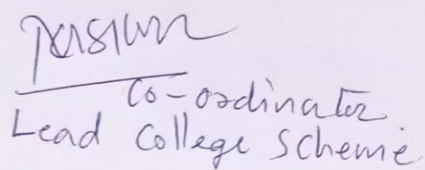 Co-ordinator
Lead College Scheme